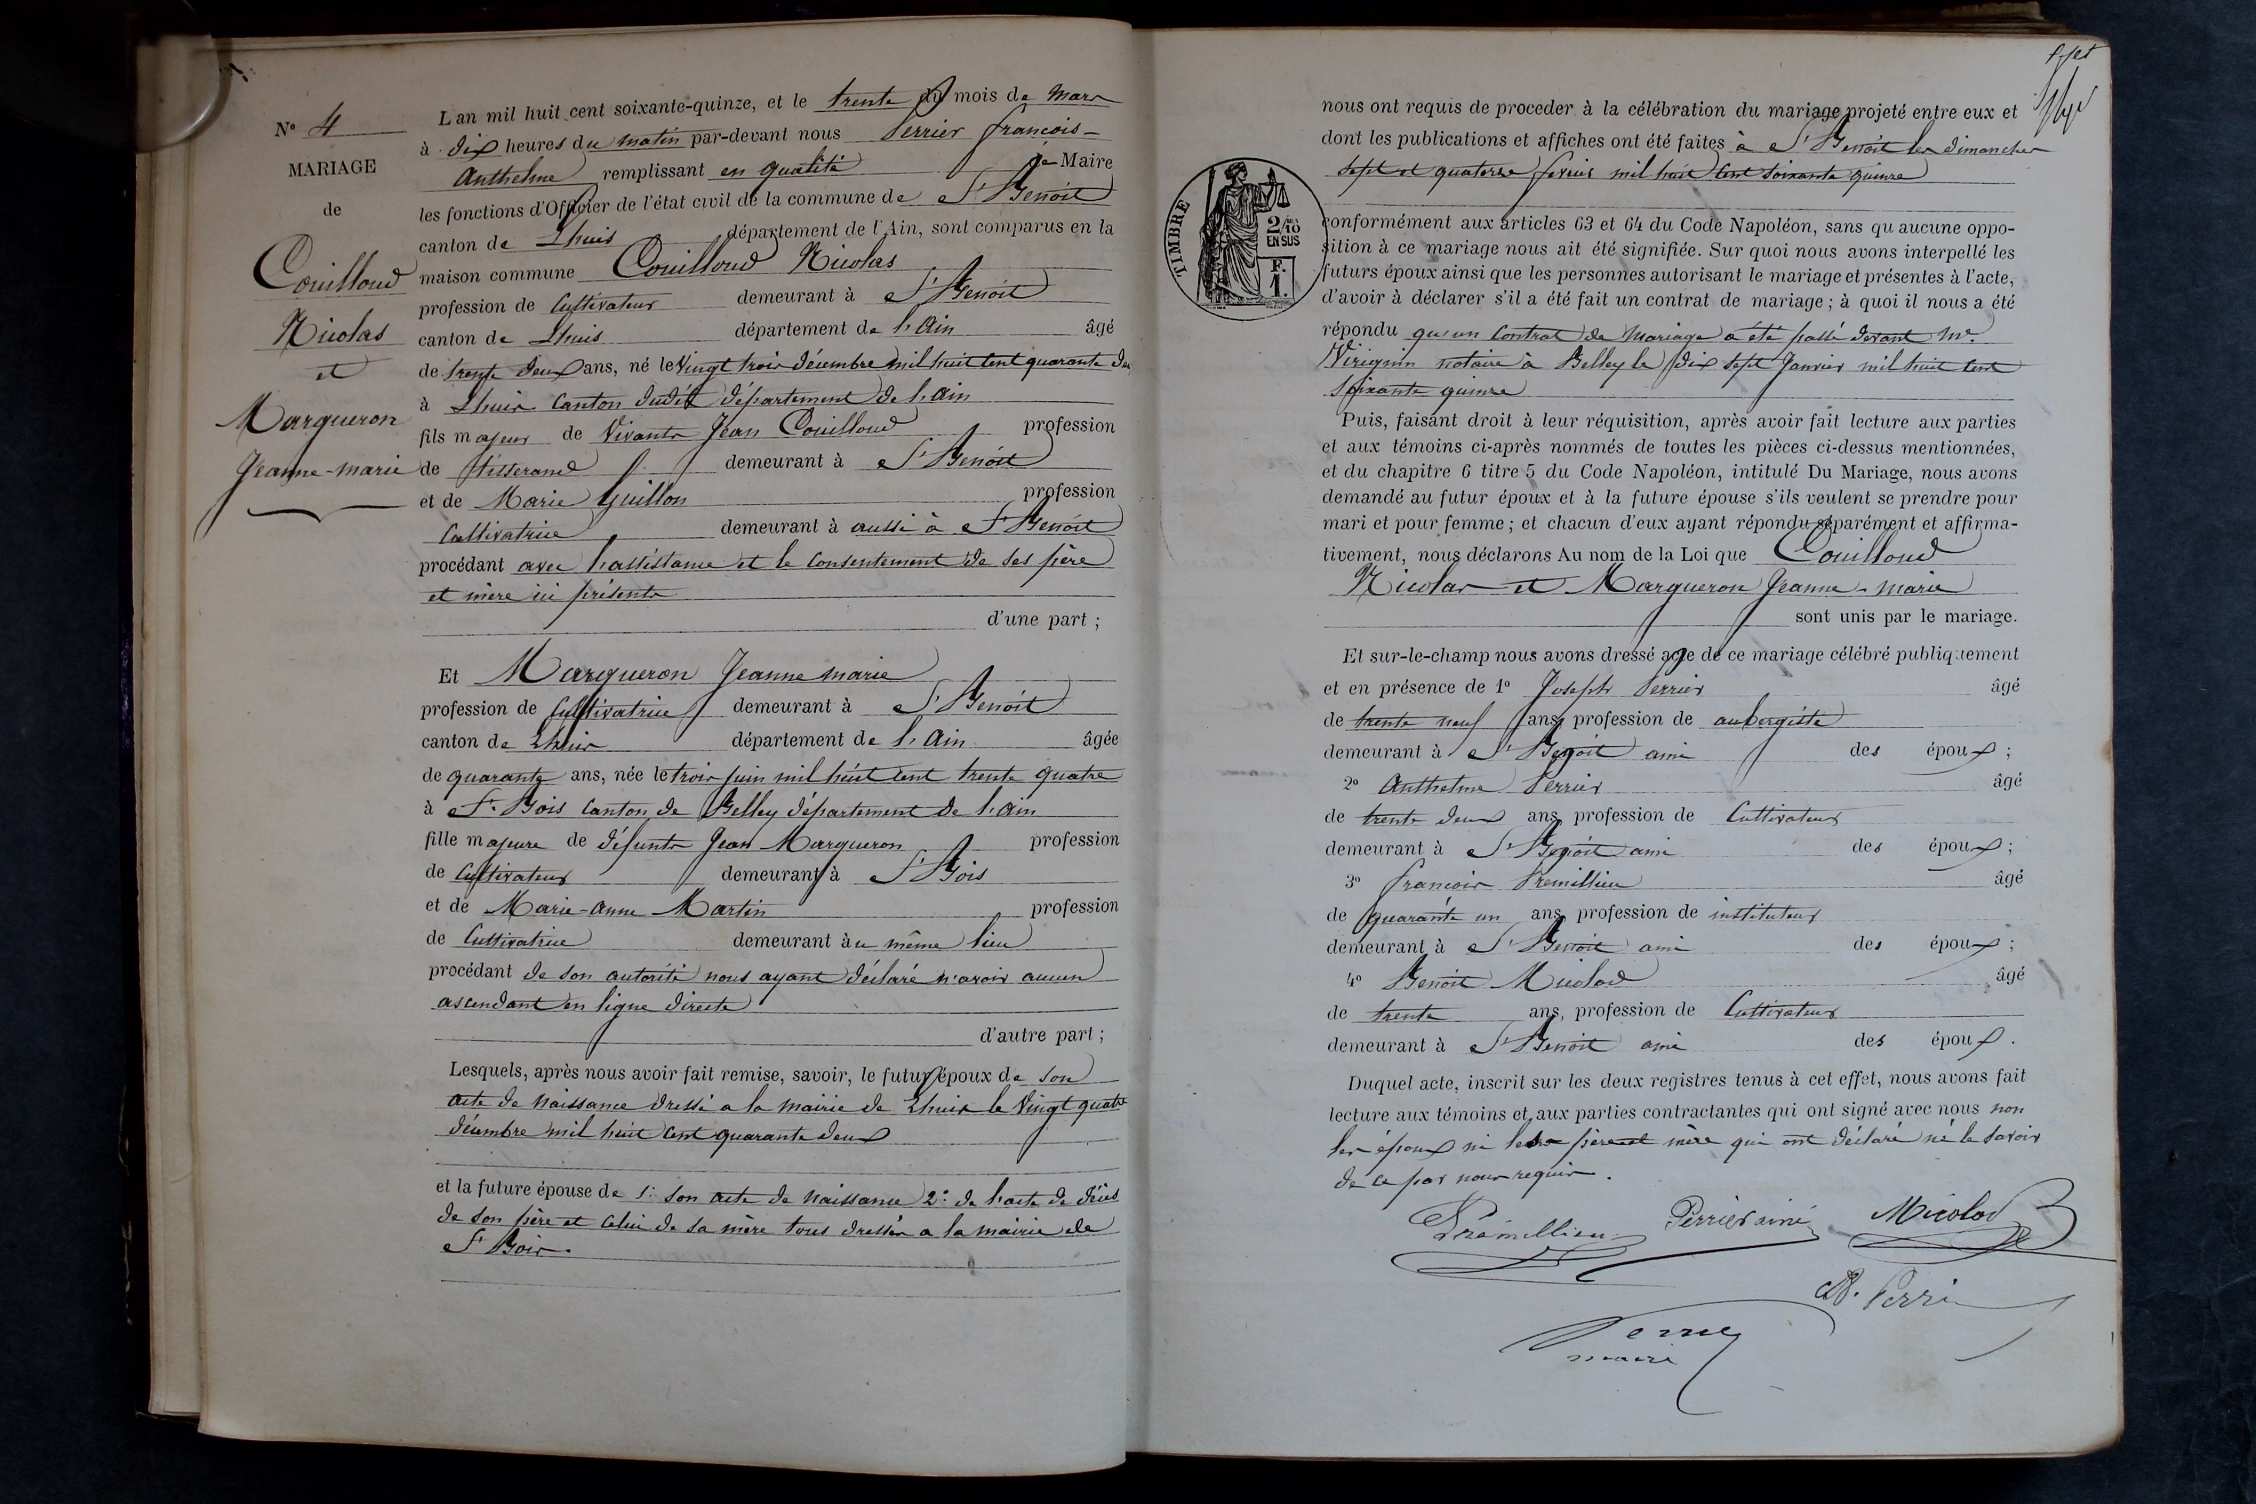 N° 4
MARIAGE
de
Couilloud
Nicolas
et
Margueron
Jeanne-marie
L'an mil huit cent soixante-quinze, et le trente du mois de mars
à dix heures du matin par-devant nous Perrier françois-
Anthelme remplissant en qualité de Maire
les fonctions d'Officier de l'état civil de la commune de St Benoit
canton de Lhuis département de l'Ain, sont comparus en la
maison commune Couilloud Nicolas
profession de Cultivateur demeurant à St Benoit
canton de Lhuis département de l'Ain âgé
de trente deux ans, né le vingt trois décembre mil huit cent quarante deux
à Lhuis canton dudit département de l'ain
fils majeur de vivants Jean Couilloud profession
de tisserand demeurant à St Benoit
et de Marie Guillon profession
Cultivatrice demeurant à aussi à St Benoit
procédant avec l'assistance et le consentement de ses père
et mère ici présents
d'une part ;
Et Margueron Jeanne marie
profession de Cultivatrice demeurant à St Benoit
canton de Lhuis département de l'Ain âgée
de quarante ans, née le trois juin mil huit cent trente quatre
à St Bois canton de Belley département de l'ain
fille majeure de défunts Jean Margueron profession
de Cultivateur demeurant à St Bois
et de Marie-anne Martin profession
de Cultivatrice demeurant àu même lieu
procédant de son autorité nous ayant déclaré n'avoir aucun
ascendant en ligne directe
d'autre part ;
Lesquels, après nous avoir fait remise, savoir, le futur époux de son
acte de naissance dressé a la mairie de Lhuis le vingt quatre
décembre mil huit cent quarante deux
et la future épouse de 1° son acte de naissance 2° de l'acte de décès
de son père et celui de sa mère tous dressés a la mairie de
St Bois.
TIMBRE
2/10
EN SUS
F.
1.
nous ont requis de proceder à la célébration du mariage projeté entre eux et
dont les publications et affiches ont été faites à St Benoit les dimanches
sept et quatorze fevrier mil huit cent soixante quinze
conformément aux articles 63 et 64 du Code Napoléon, sans qu'aucune oppo-
sition à ce mariage nous ait été signifiée. Sur quoi nous avons interpellé les
futurs époux ainsi que les personnes autorisant le mariage et présentes à l'acte,
d'avoir à déclarer s'il a été fait un contrat de mariage ; à quoi il nous a été
répondu qu'un contrat de mariage a été passé devant Me
Virignin notaire à Belley le dix sept Janvier mil huit cent
soixante quinze
Puis, faisant droit à leur réquisition, après avoir fait lecture aux parties
et aux témoins ci-après nommés de toutes les pièces ci-dessus mentionnées,
et du chapitre 6 titre 5 du Code Napoléon, intitulé Du Mariage, nous avons
demandé au futur époux et à la future épouse s'ils veulent se prendre pour
mari et pour femme ; et chacun d'eux ayant répondu séparément et affirma-
tivement, nous déclarons Au nom de la Loi que Couilloud
Nicolas et Margueron Jeanne-marie
sont unis par le mariage.
Et sur-le-champ nous avons dressé acte de ce mariage célébré publiquement
et en présence de 1° Joseph Perrier âgé
de trente neuf ans, profession de aubergiste
demeurant à St Benoit ami des époux ;
2° Anthelme Perrier âgé
de trente deux ans profession de Cultivateur
demeurant à St Benoit ami des époux ;
3° françois Premillieu âgé
de quarante un ans profession de instituteur
demeurant à St Benoit ami des époux ;
4° Benoit Micolod âgé
de trente ans, profession de Cultivateur
demeurant à St Benoit ami des époux .
Duquel acte, inscrit sur les deux registres tenus à cet effet, nous avons fait
lecture aux témoins et aux parties contractantes qui ont signé avec nous non
les époux ni les père et mère qui ont déclaré ne le savoir
de ce par nous requis.
Prémillieu Perrier ainé Micolod
Perri
maire